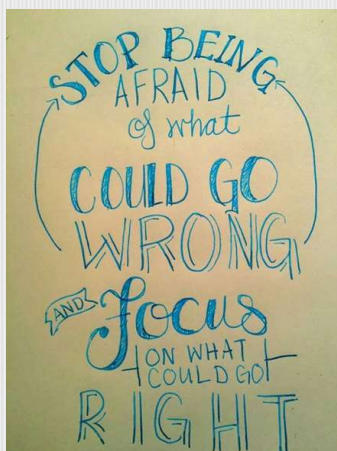 STOP BEING
AFRAID
of what
COULD GO
WRONG
AND
focus
ON WHAT
COULD GO
RIGHT